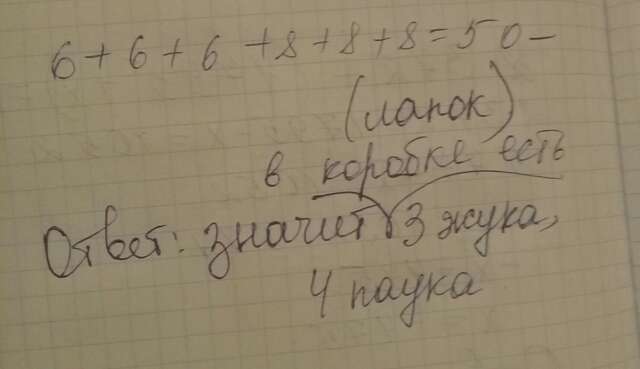 6+6+6+8+8+8=50 –
(лапок)
в коробке есть
Ответ: значит 3 жука,
4 паука